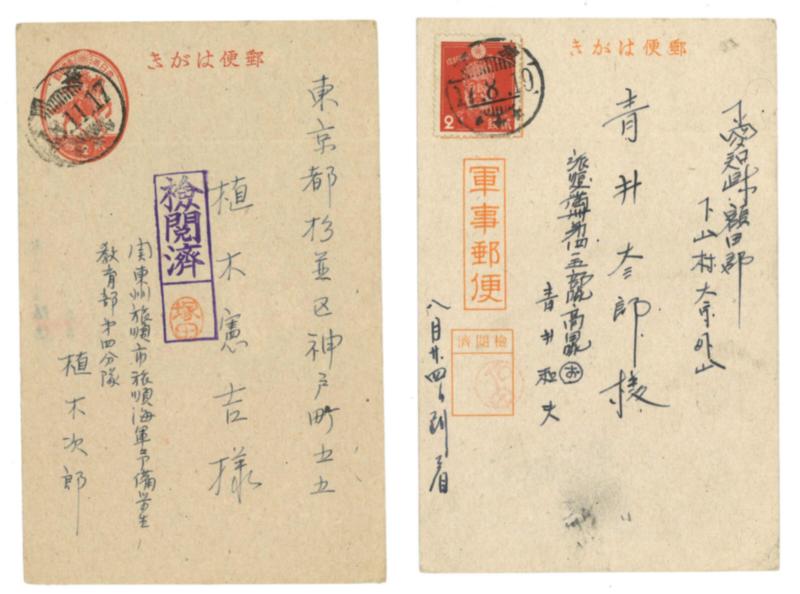 きがは便郵
東京都杉並区神戸町五五
植木憲吉様
檢閲濟
塚田
関東州旅順市旅順海軍予備学生
教育部第四分隊
植木次郎
11.17
きがは便郵
愛知県額田郡
下山村大字外山
青井太郎様
2
17.8.19
軍事郵便
濟閲檢
青井和夫
八月廿四日到着